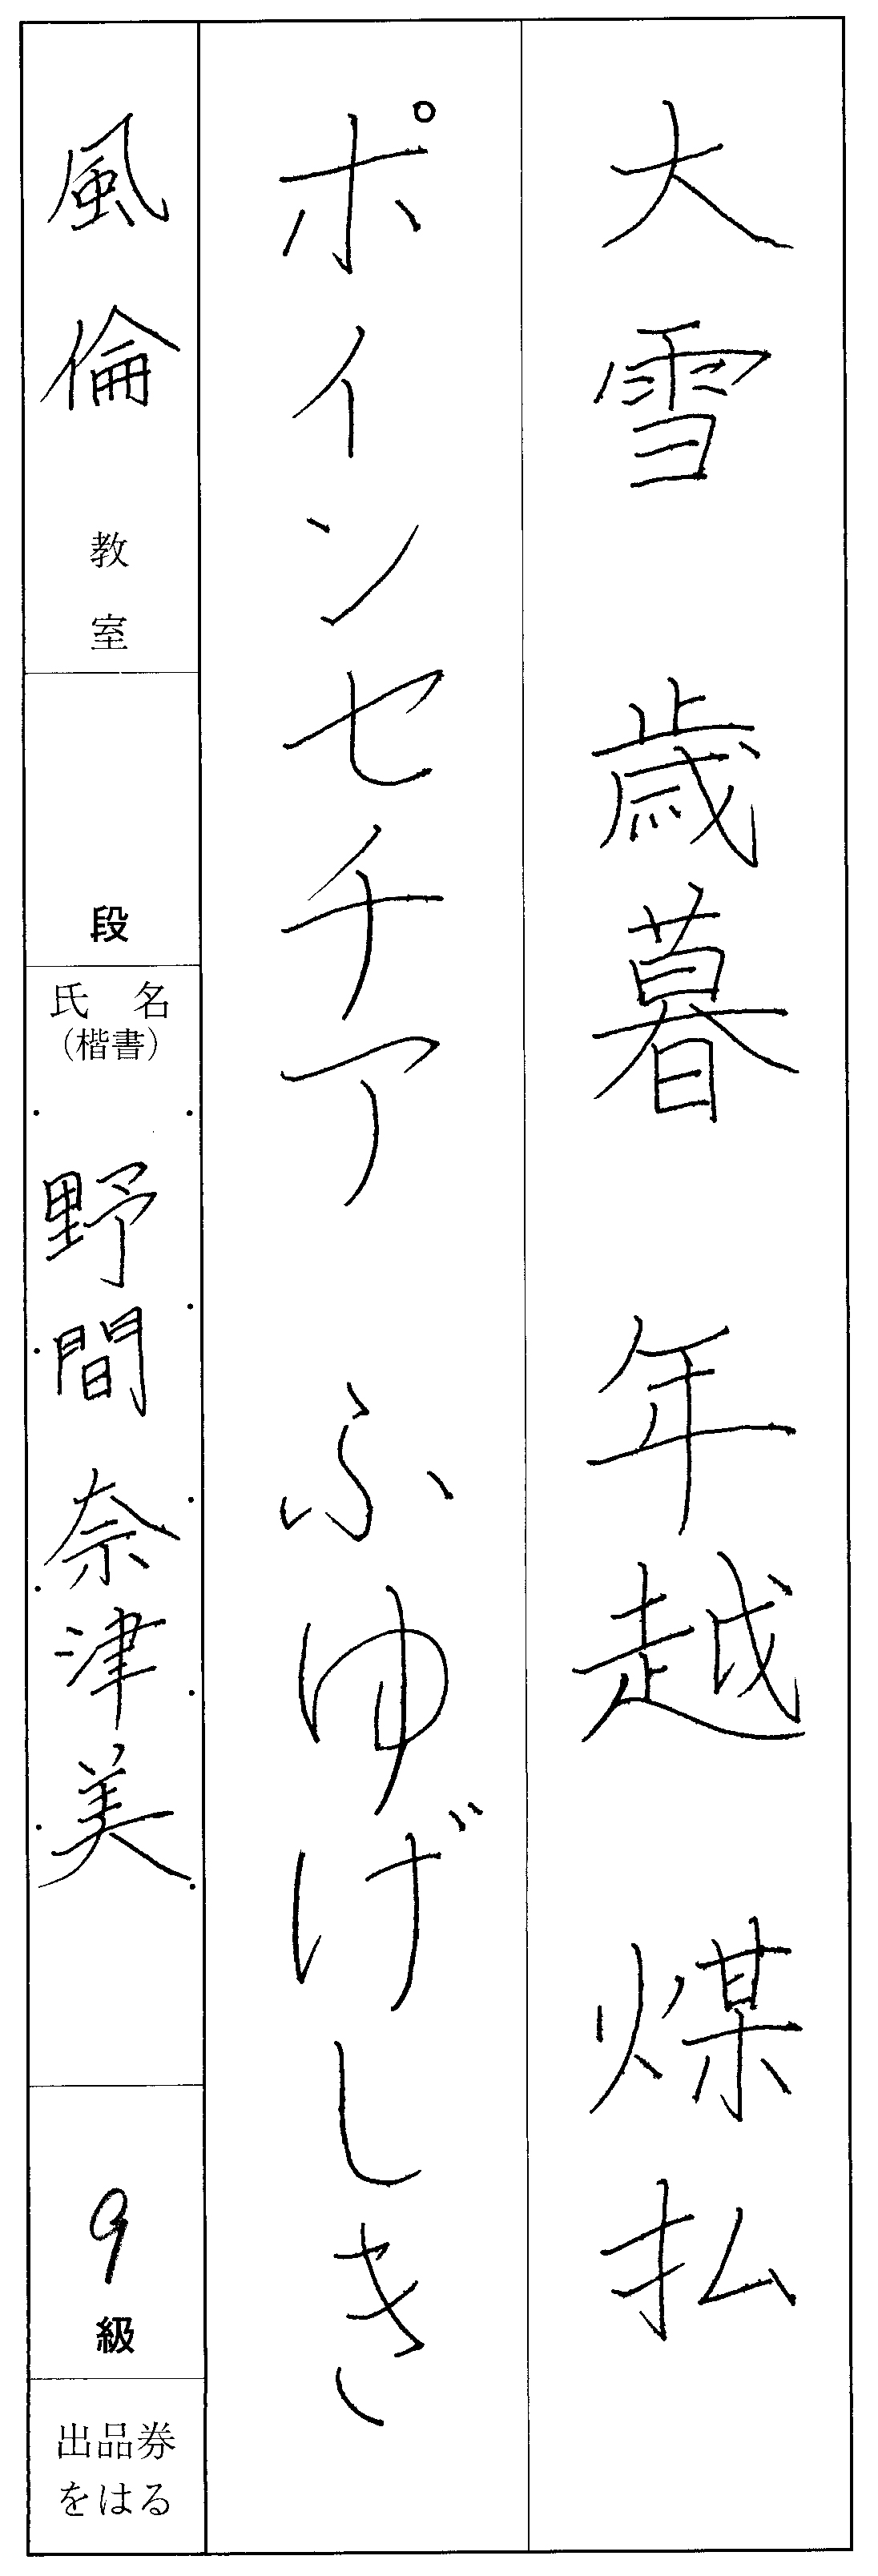 大雪 歳暮 年越 煤払
ポインセチア ふゆげしき
風倫 教室
段
氏名
(楷書)
野間 奈津美
9 級
出品券
をはる